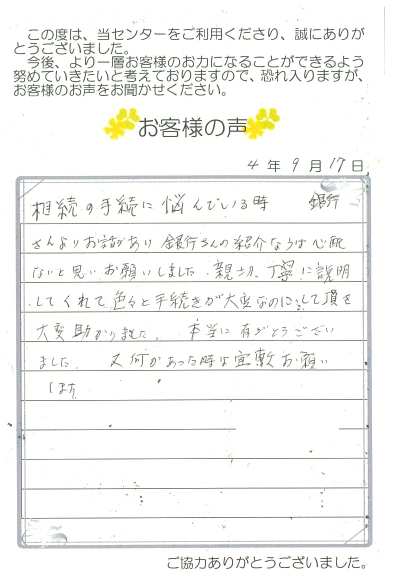 この度は、当センターをご利用くださり、誠にありが
とうございました。
今後、より一層お客様のお力になることができるよう
努めていきたいと考えておりますので、恐れ入りますが、
お客様のお声をお聞かせください。
お客様の声
4 年 9 月 17 日
相続の手続に悩んでいる時 銀行
さんよりお話があり 銀行さんの紹介ならば心配
ないと思いお願いしました。親切、丁寧に説明
してくれて色々と手続きが大変なのに、して頂き
大変助かりました。 本当に有がとうござい
ました。 又何かあった時は宜敷お願い
します
ご協力ありがとうございました。